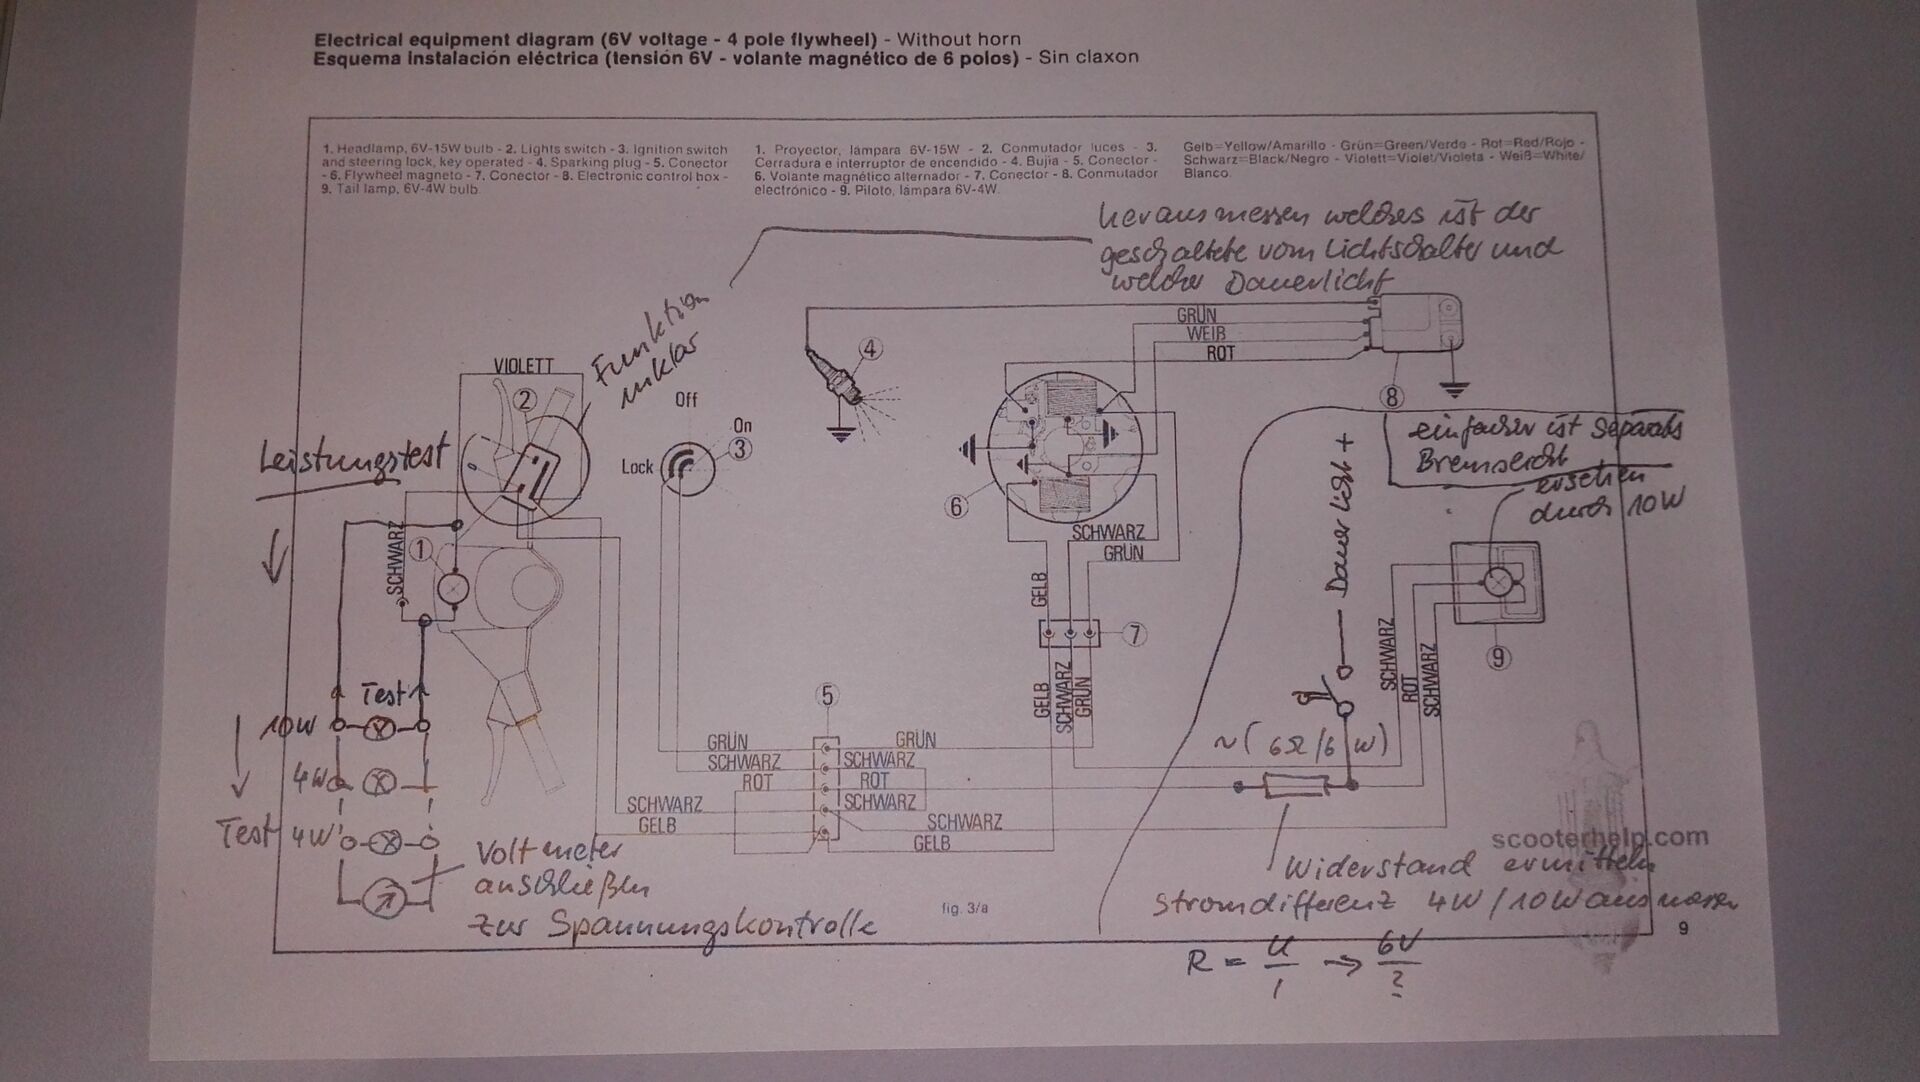 Electrical equipment diagram (6V voltage - 4 pole flywheel) - Without horn
Esquema instalación eléctrica (tensión 6V - volante magnético de 6 polos) - Sin claxon
1. Headlamp, 6V-15W bulb - 2. Lights switch - 3. Ignition switch
and steering lock, key operated - 4. Sparking plug - 5. Conector
- 6. Flywheel magneto - 7. Conector - 8. Electronic control box -
9. Tail lamp, 6V-4W bulb.
1. Proyector, lámpara 6V-15W - 2. Conmutador luces - 3.
Cerradura e interruptor de encendido - 4. Bujía - 5. Conector -
6. Volante magnético alternador - 7. Conector - 8. Conmutador
electrónico - 9. Piloto, lámpara 6V-4W.
Gelb=Yellow/Amarillo - Grün=Green/Verde - Rot=Red/Rojo -
Schwarz=Black/Negro - Violett=Violet/Violeta - Weiß=White/
Blanco.
herausmessen welches ist der
geschaltete vom Lichtschalter und
welcher Dauerlicht
Funktion
unklar
VIOLETT
2
Off
On
Lock
3
4
GRÜN
WEIß
ROT
8
einfacher ist separates
Bremslicht
ersetzen
durch 10W
Leistungstest
SCHWARZ
1
6
SCHWARZ
GRÜN
GELB
7
Dauerlicht +
9
SCHWARZ
ROT
SCHWARZ
GELB
SCHWARZ
GRÜN
5
Test
10W
4W
Test 4W
GRÜN
GRÜN
SCHWARZ
SCHWARZ
ROT
ROT
SCHWARZ
SCHWARZ
SCHWARZ
GELB
GELB
~(6Ω/6W)
scooterhelp.com
Voltmeter
anschließen
zur Spannungskontrolle
Widerstand ermitteln
Stromdifferenz 4W/10W ausmessen
fig. 3/a
9
R = U/I → 6V/?